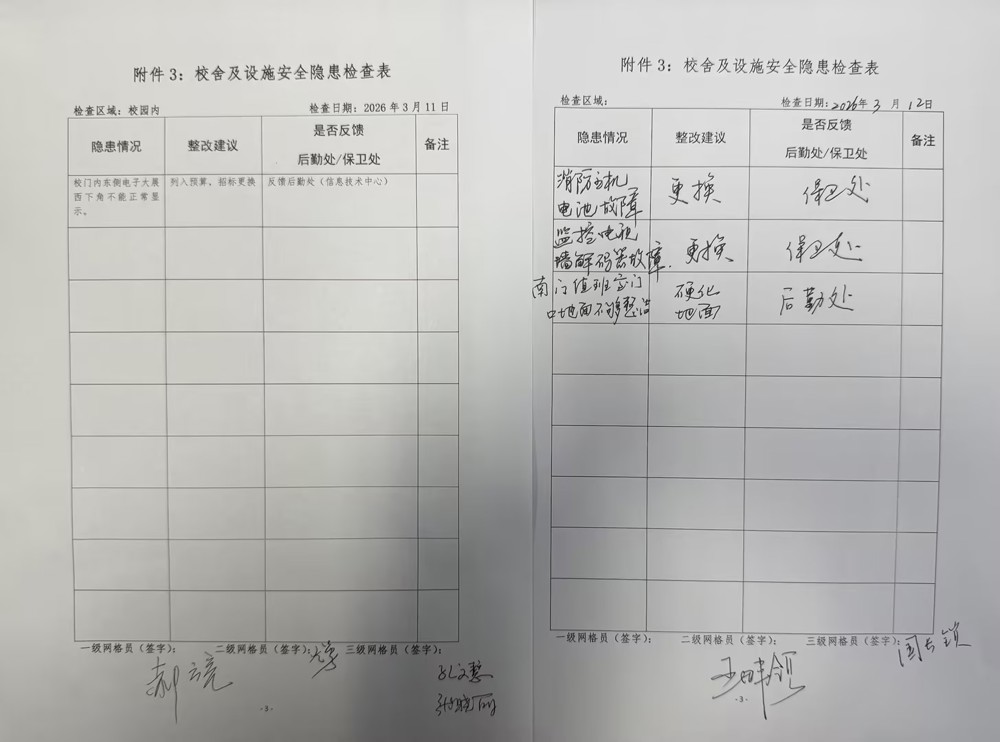 附件 3：校舍及设施安全隐患检查表
检查区域：校园内 检查日期：2026 年 3 月 11 日
隐患情况 整改建议 是否反馈 后勤处/保卫处 备注
校门内东侧电子大屏
西下角不能正常显
示。
列入预算、招标更换
反馈后勤处（信息技术中心）
一级网格员（签字）： 二级网格员（签字）： 三级网格员（签字）：
-3-
附件 3：校舍及设施安全隐患检查表
检查区域： 检查日期：2026年 3 月 12日
隐患情况 整改建议 是否反馈 后勤处/保卫处 备注
消防主机
电池故障
更换
保卫处
监控电视
墙解码器故障.
更换
保卫处
南门值班室门
口地面不够整洁
硬化
地面
后勤处
一级网格员（签字）： 二级网格员（签字）： 三级网格员（签字）：
-3-